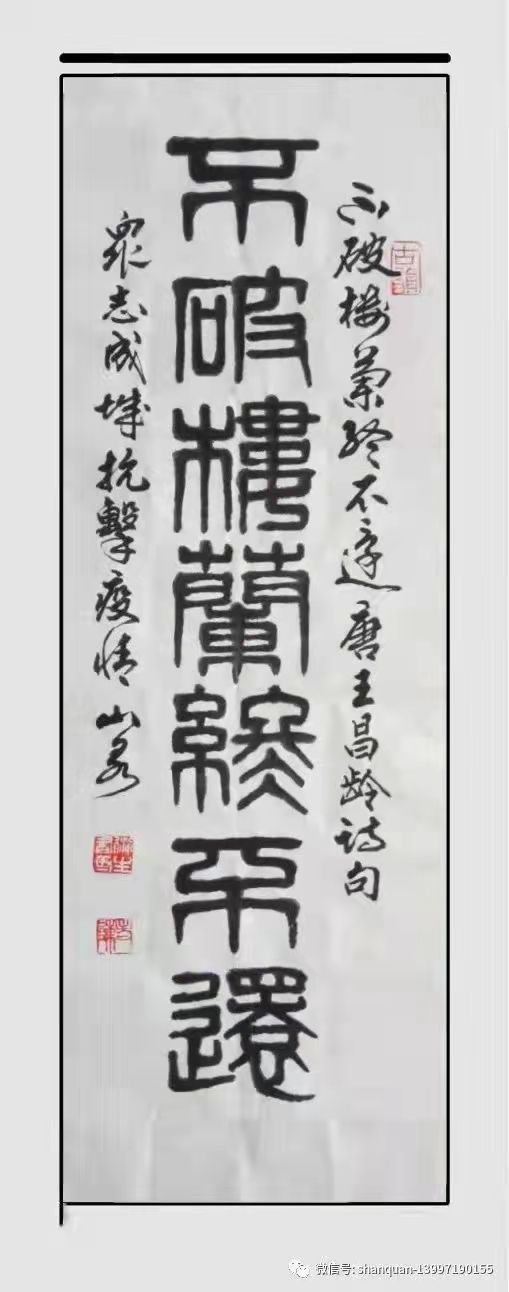 不破樓蘭终不還唐王昌龄诗句
不破樓蘭終不還
眾志成城抗擊疫情山泉
微信号: shanquan-13997190155